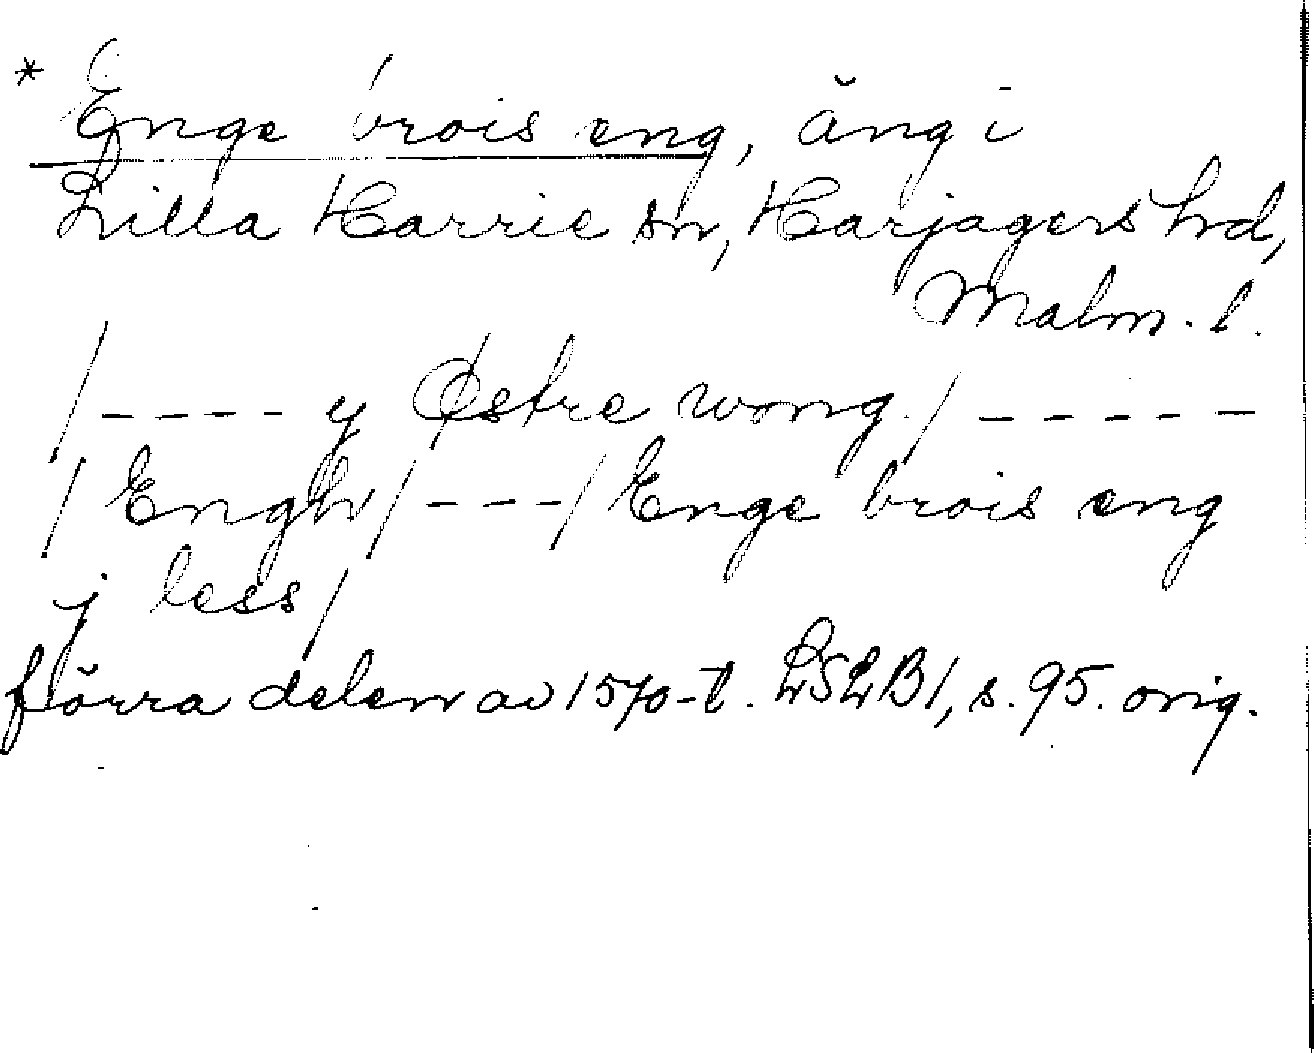 * Enge brois eng, äng i
Lilla Harrie sn, Harjagers hd,
Malm. l.
/---- y Østre wong./-----
/Engh/---/Enge brois eng
j less/
förra delen av 1570-t. LSLB1, s. 95. orig.